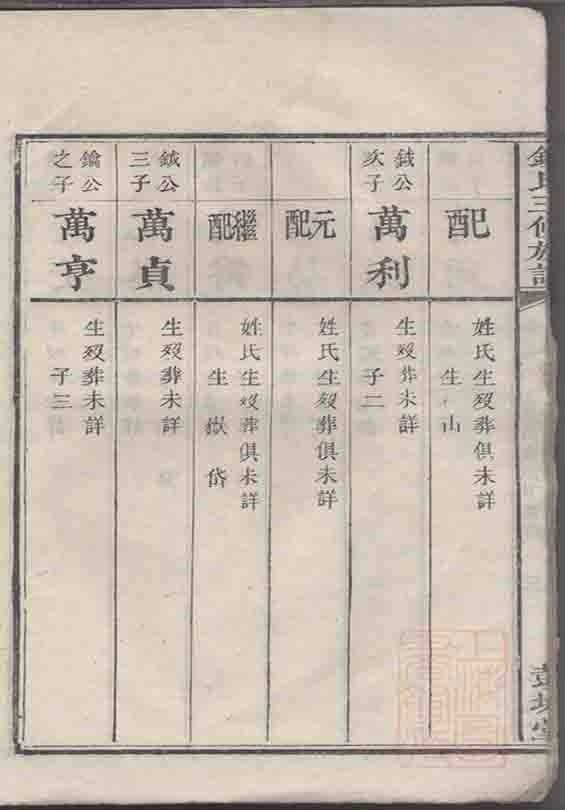 錢氏三修族譜
彭城堂
配
姓氏生歿葬俱未詳
生 山
鉞公
次子
萬利
生歿葬未詳
子二
元配
姓氏生歿葬俱未詳
繼配
姓氏生歿葬俱未詳
生 嶽 岱
鉞公
三子
萬貞
生歿葬未詳
鑰公
之子
萬亨
生歿葬未詳
子三